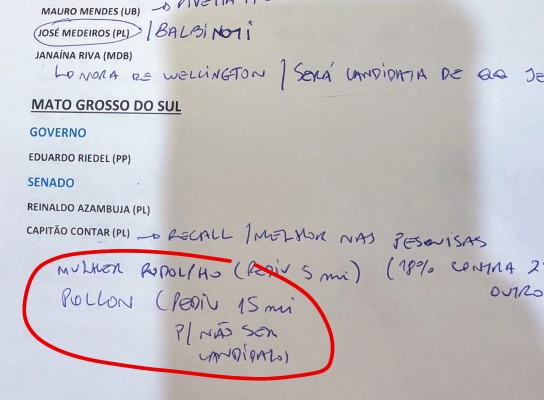 MAURO MENDES (UB) →
JOSÉ MEDEIROS (PL) / BALBINOTI
JANAÍNA RIVA (MDB)
NORA DE WELLINGTON / SERÁ CANDIDATA DE QQ JE
MATO GROSSO DO SUL
GOVERNO
EDUARDO RIEDEL (PP)
SENADO
REINALDO AZAMBUJA (PL)
CAPITÃO CONTAR (PL) → RECALL / MELHOR NAS PESQUISAS
MULHER RODOLPHO (PEDIU 5 mi) (18% CONTRA 2
POLLON (PEDIU 15 mi OUTRO
P/ NÃO SER
CANDIDATO)